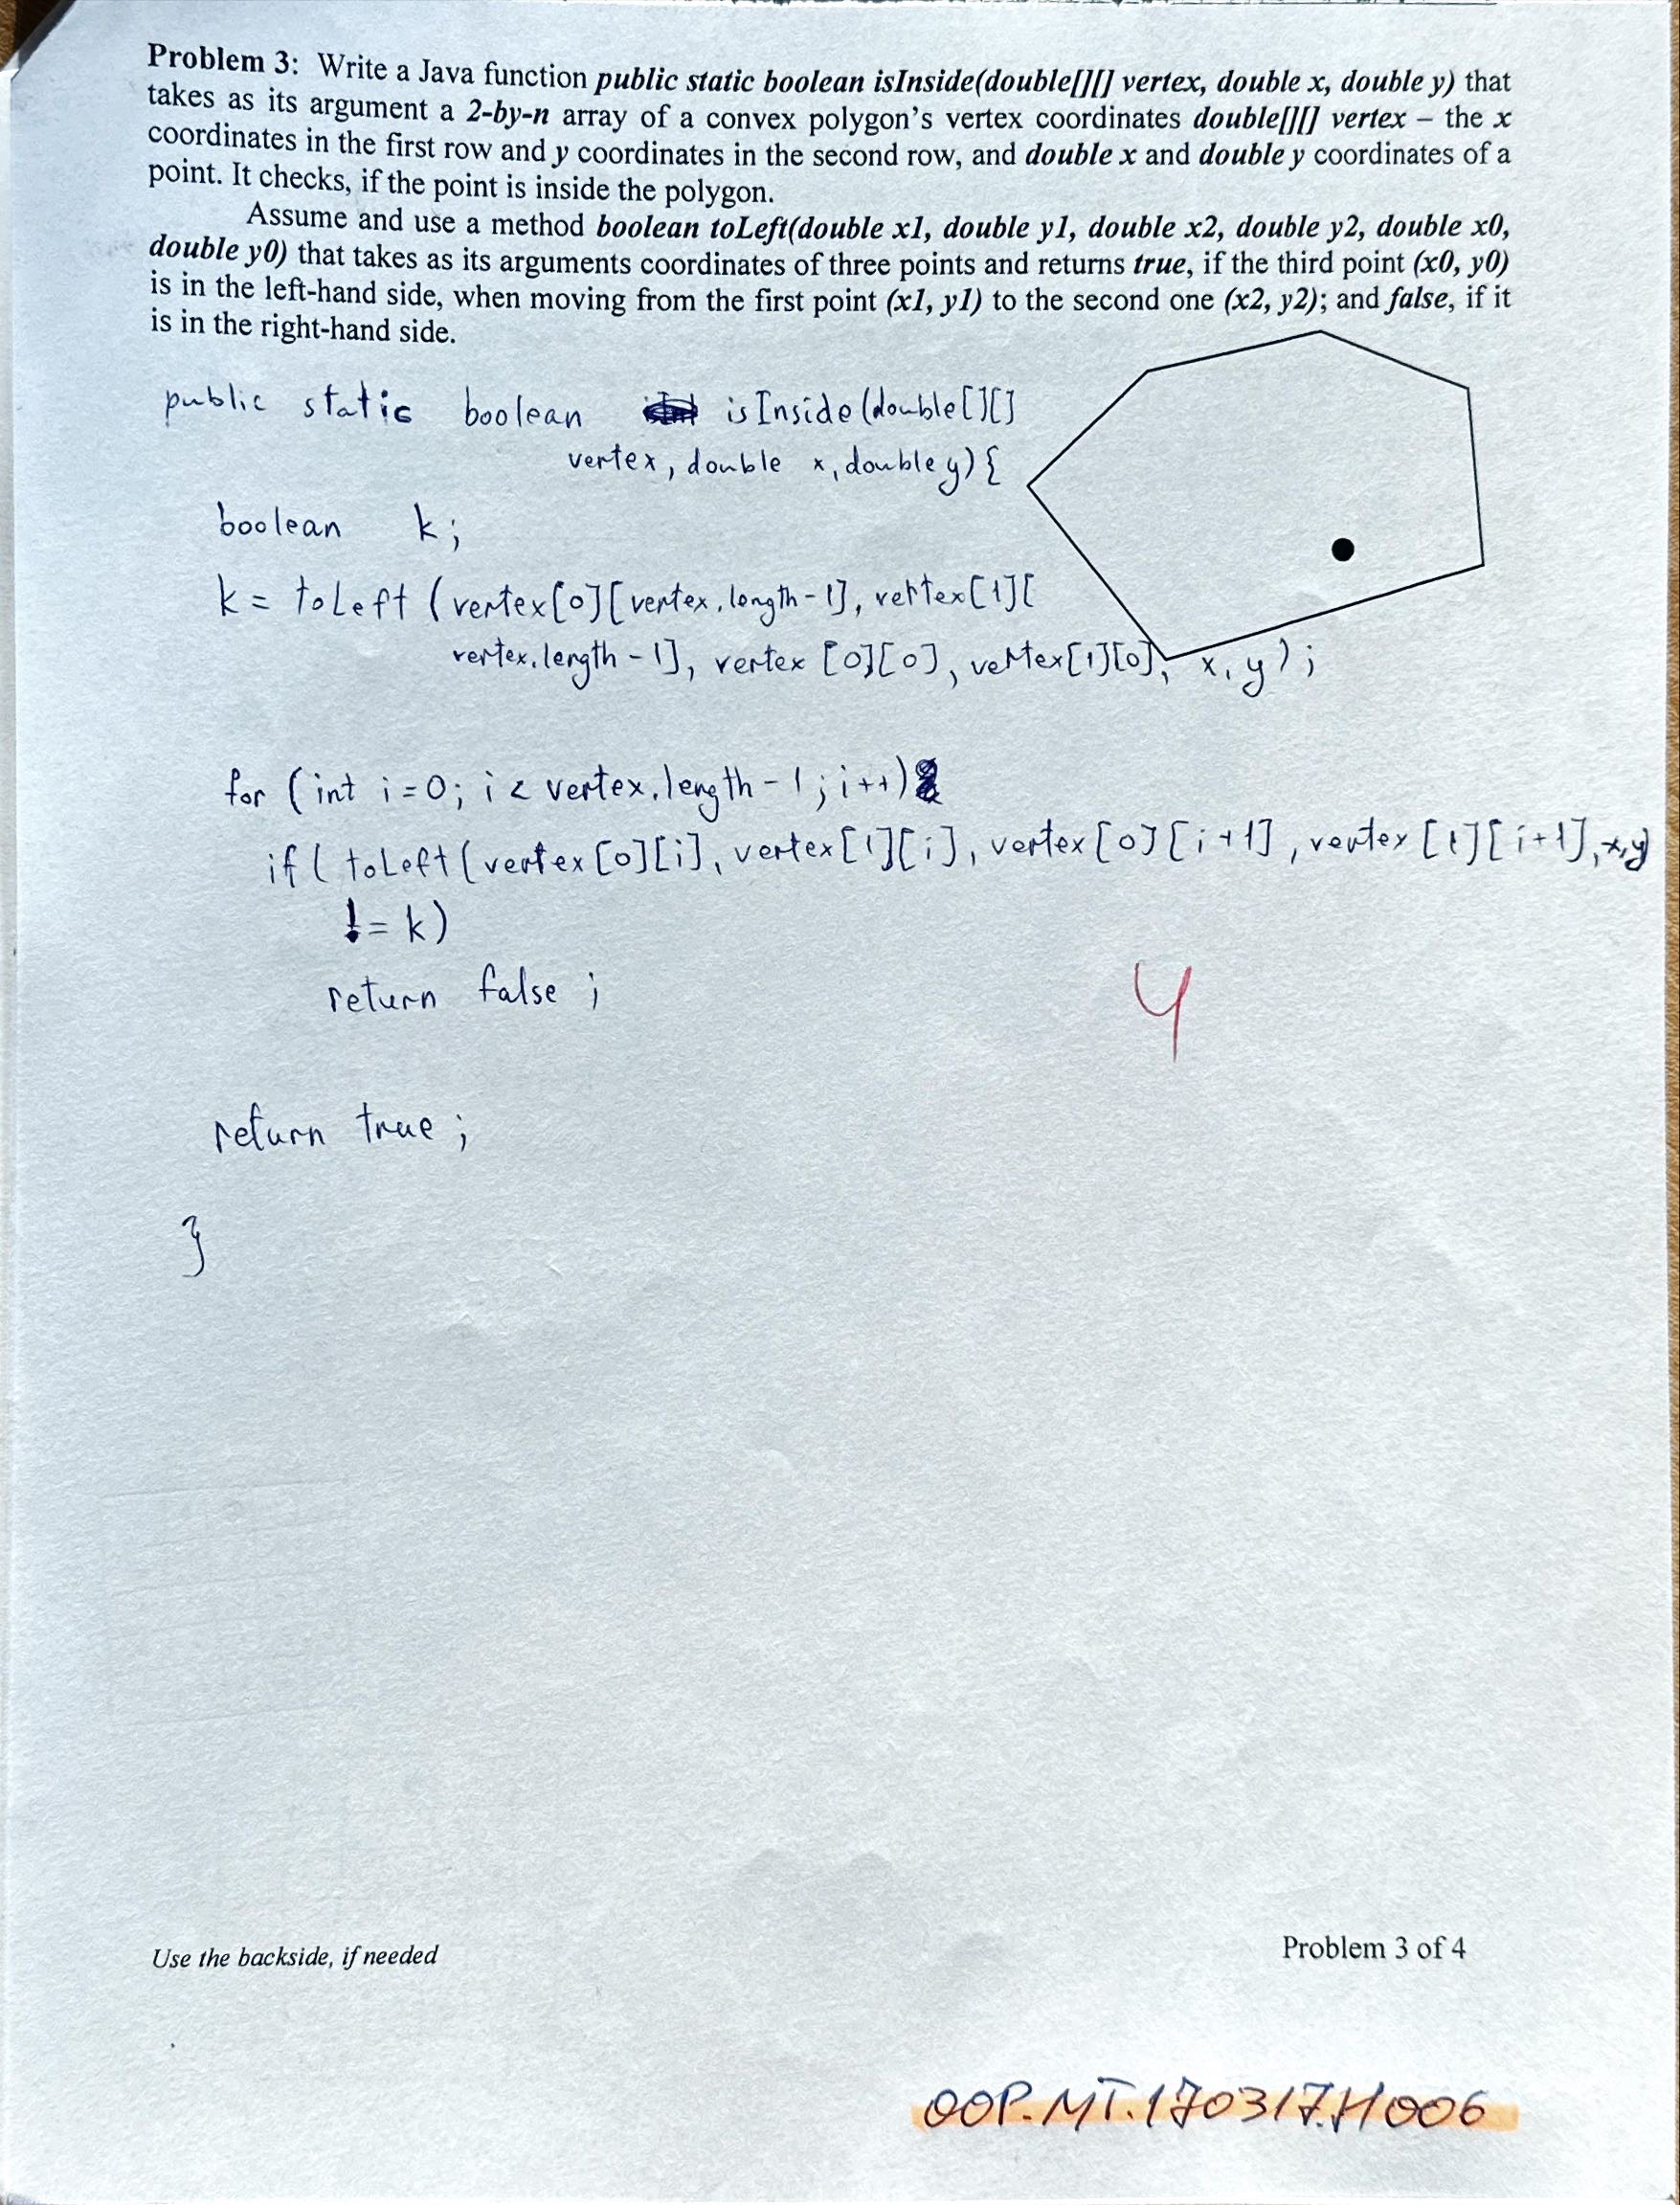 Problem 3: Write a Java function public static boolean isInside(double[][] vertex, double x, double y) that
takes as its argument a 2-by-n array of a convex polygon's vertex coordinates double[][] vertex – the x
coordinates in the first row and y coordinates in the second row, and double x and double y coordinates of a
point. It checks, if the point is inside the polygon.
Assume and use a method boolean toLeft(double x1, double y1, double x2, double y2, double x0,
double y0) that takes as its arguments coordinates of three points and returns true, if the third point (x0, y0)
is in the left-hand side, when moving from the first point (x1, y1) to the second one (x2, y2); and false, if it
is in the right-hand side.
public static boolean isInside(double[][]
vertex, double x, double y) {
boolean k;
k = toLeft (vertex[0][vertex.length-1], vertex[1][
vertex.length-1], vertex [0][0], vertex[1][0], x, y);
for (int i=0; i < vertex.length-1; i++)
if( toLeft(vertex[0][i], vertex[1][i], vertex[0][i+1], vertex[1][i+1], x,y)
!= k)
return false;
4
return true;
}
Use the backside, if needed
Problem 3 of 4
OOP.MT.170317.H006